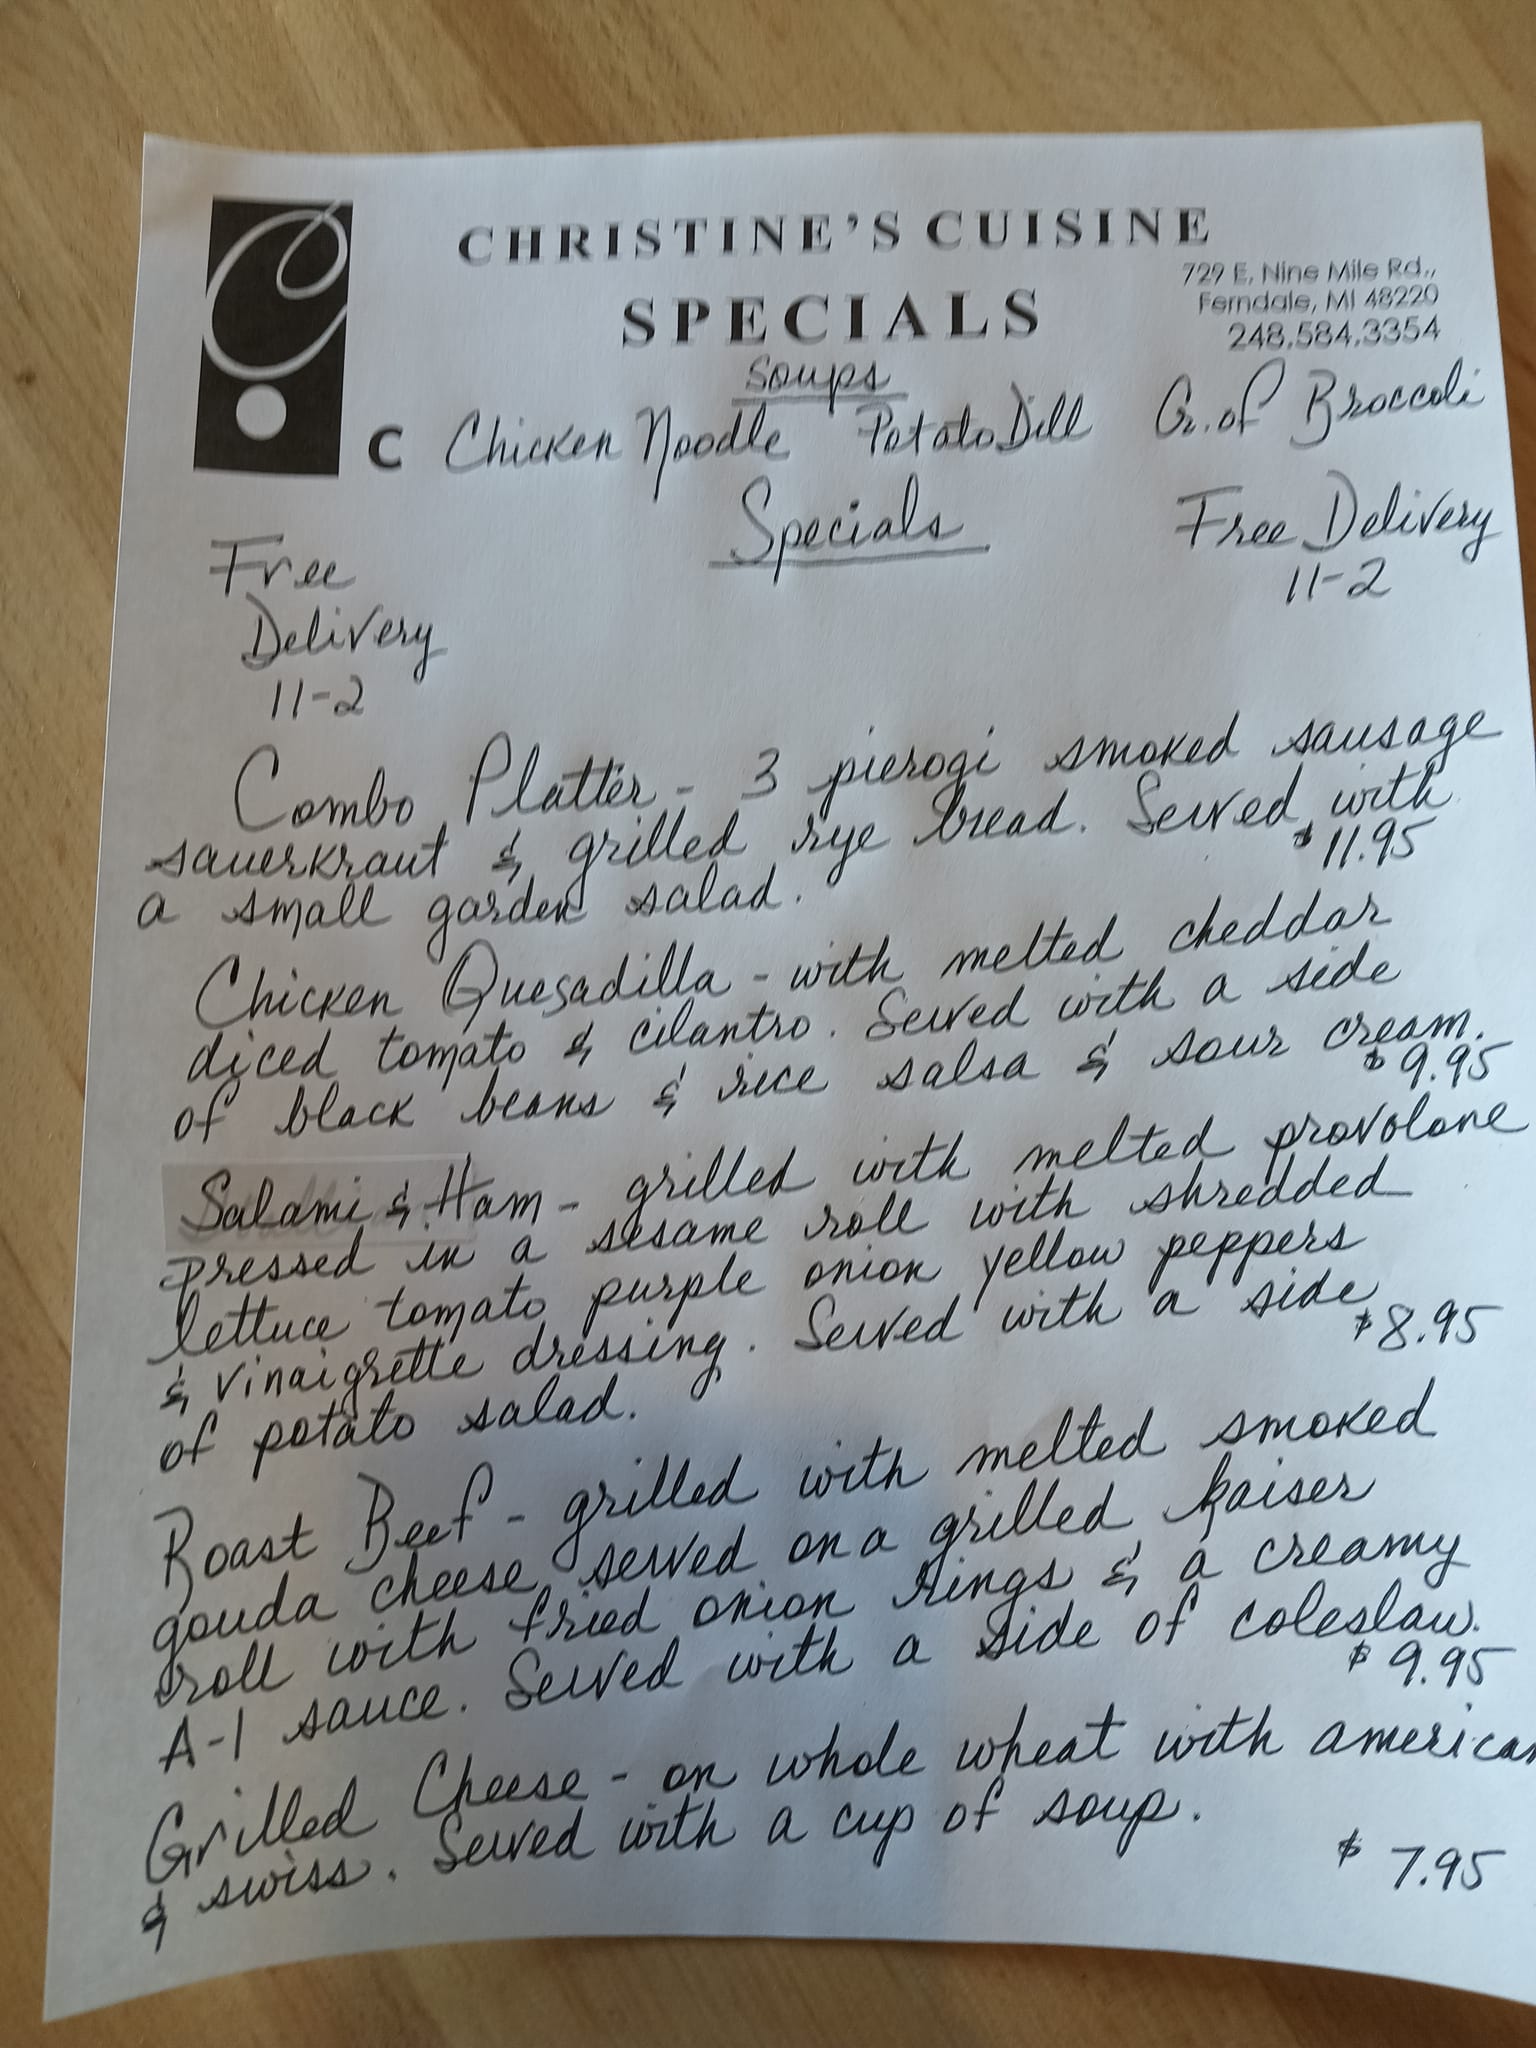 CHRISTINE'S CUISINE
729 E. Nine Mile Rd.,
Ferndale, MI 48220
248.584.3354
SPECIALS
Soups
C Chicken Noodle Potato Dill Cr. of Broccoli
Specials
Free
Delivery
11-2
Free Delivery
11-2
Combo Platter - 3 pierogi smoked sausage
sauerkraut & grilled rye bread. Served with
a small garden salad. $11.95
Chicken Quesadilla - with melted cheddar
diced tomato & cilantro. Served with a side
of black beans & rice salsa & sour cream.
$9.95
Salami & Ham - grilled with melted provolone
pressed in a sesame roll with shredded
lettuce tomato purple onion yellow peppers
& vinaigrette dressing. Served with a side
of potato salad. $8.95
Roast Beef - grilled with melted smoked
gouda cheese served on a grilled kaiser
roll with fried onion rings & a creamy
A-1 sauce. Served with a side of coleslaw.
$9.95
Grilled Cheese - on whole wheat with american
& swiss. Served with a cup of soup.
$7.95